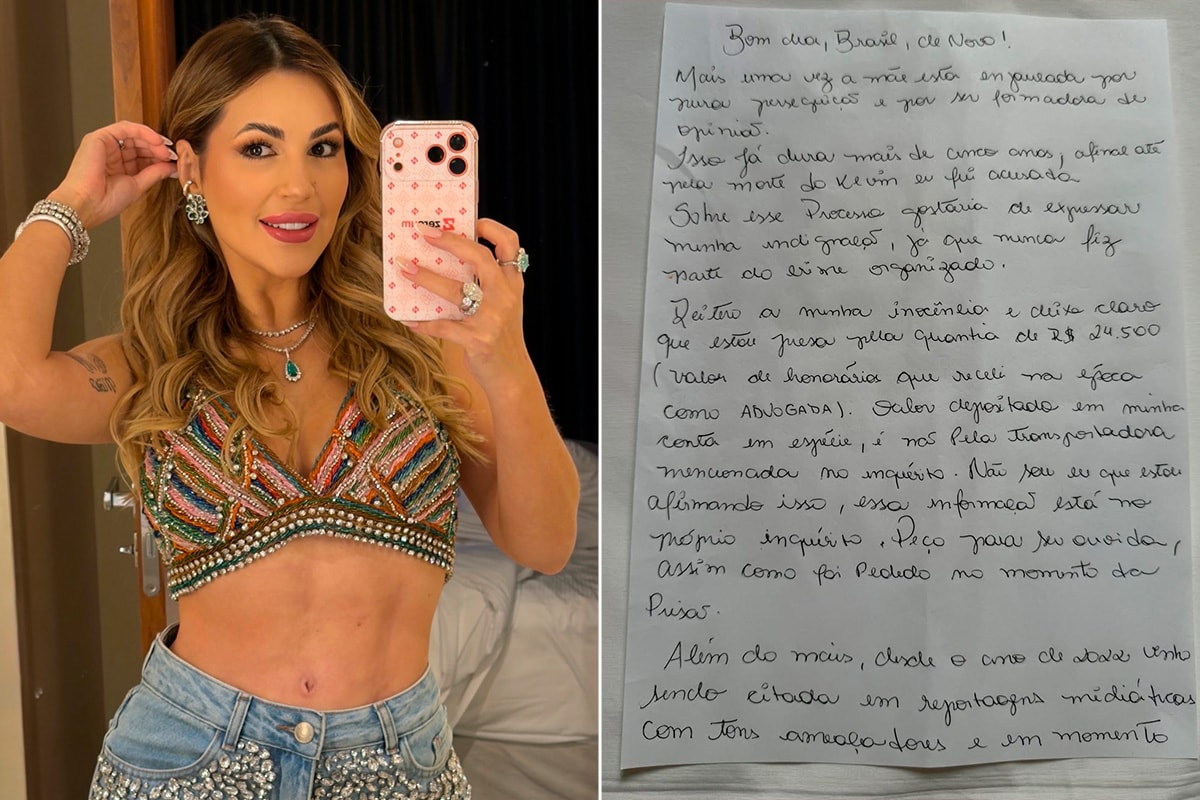 Bom dia, Brasil, de Novo!
Mais uma vez a mãe está enjaulada por
pura perseguição e por ser formadora de
opinião.
Isso já dura mais de cinco anos, afinal até
pela morte do Kevin eu fui acusada
Sobre esse Processo gostaria de expressar
minha indignação, já que nunca fiz
parte do crime organizado.
Reitero a minha inocência e deixo claro
que estou presa pela quantia de R$ 24.500
(valor de honorários que recebi na época
como ADVOGADA). Valor depositado em minha
conta em espécie, e não Pela transportadora
mencionada no inquérito. Não sou eu que estou
afirmando isso, essa informação está no
próprio inquérito. Peço para ser ouvida,
assim como foi Pedido no momento da
Prisão.
Além do mais, desde o ano de 2022 venho
sendo citada em reportagens midiáticas
com tons ameaçadores e em momento